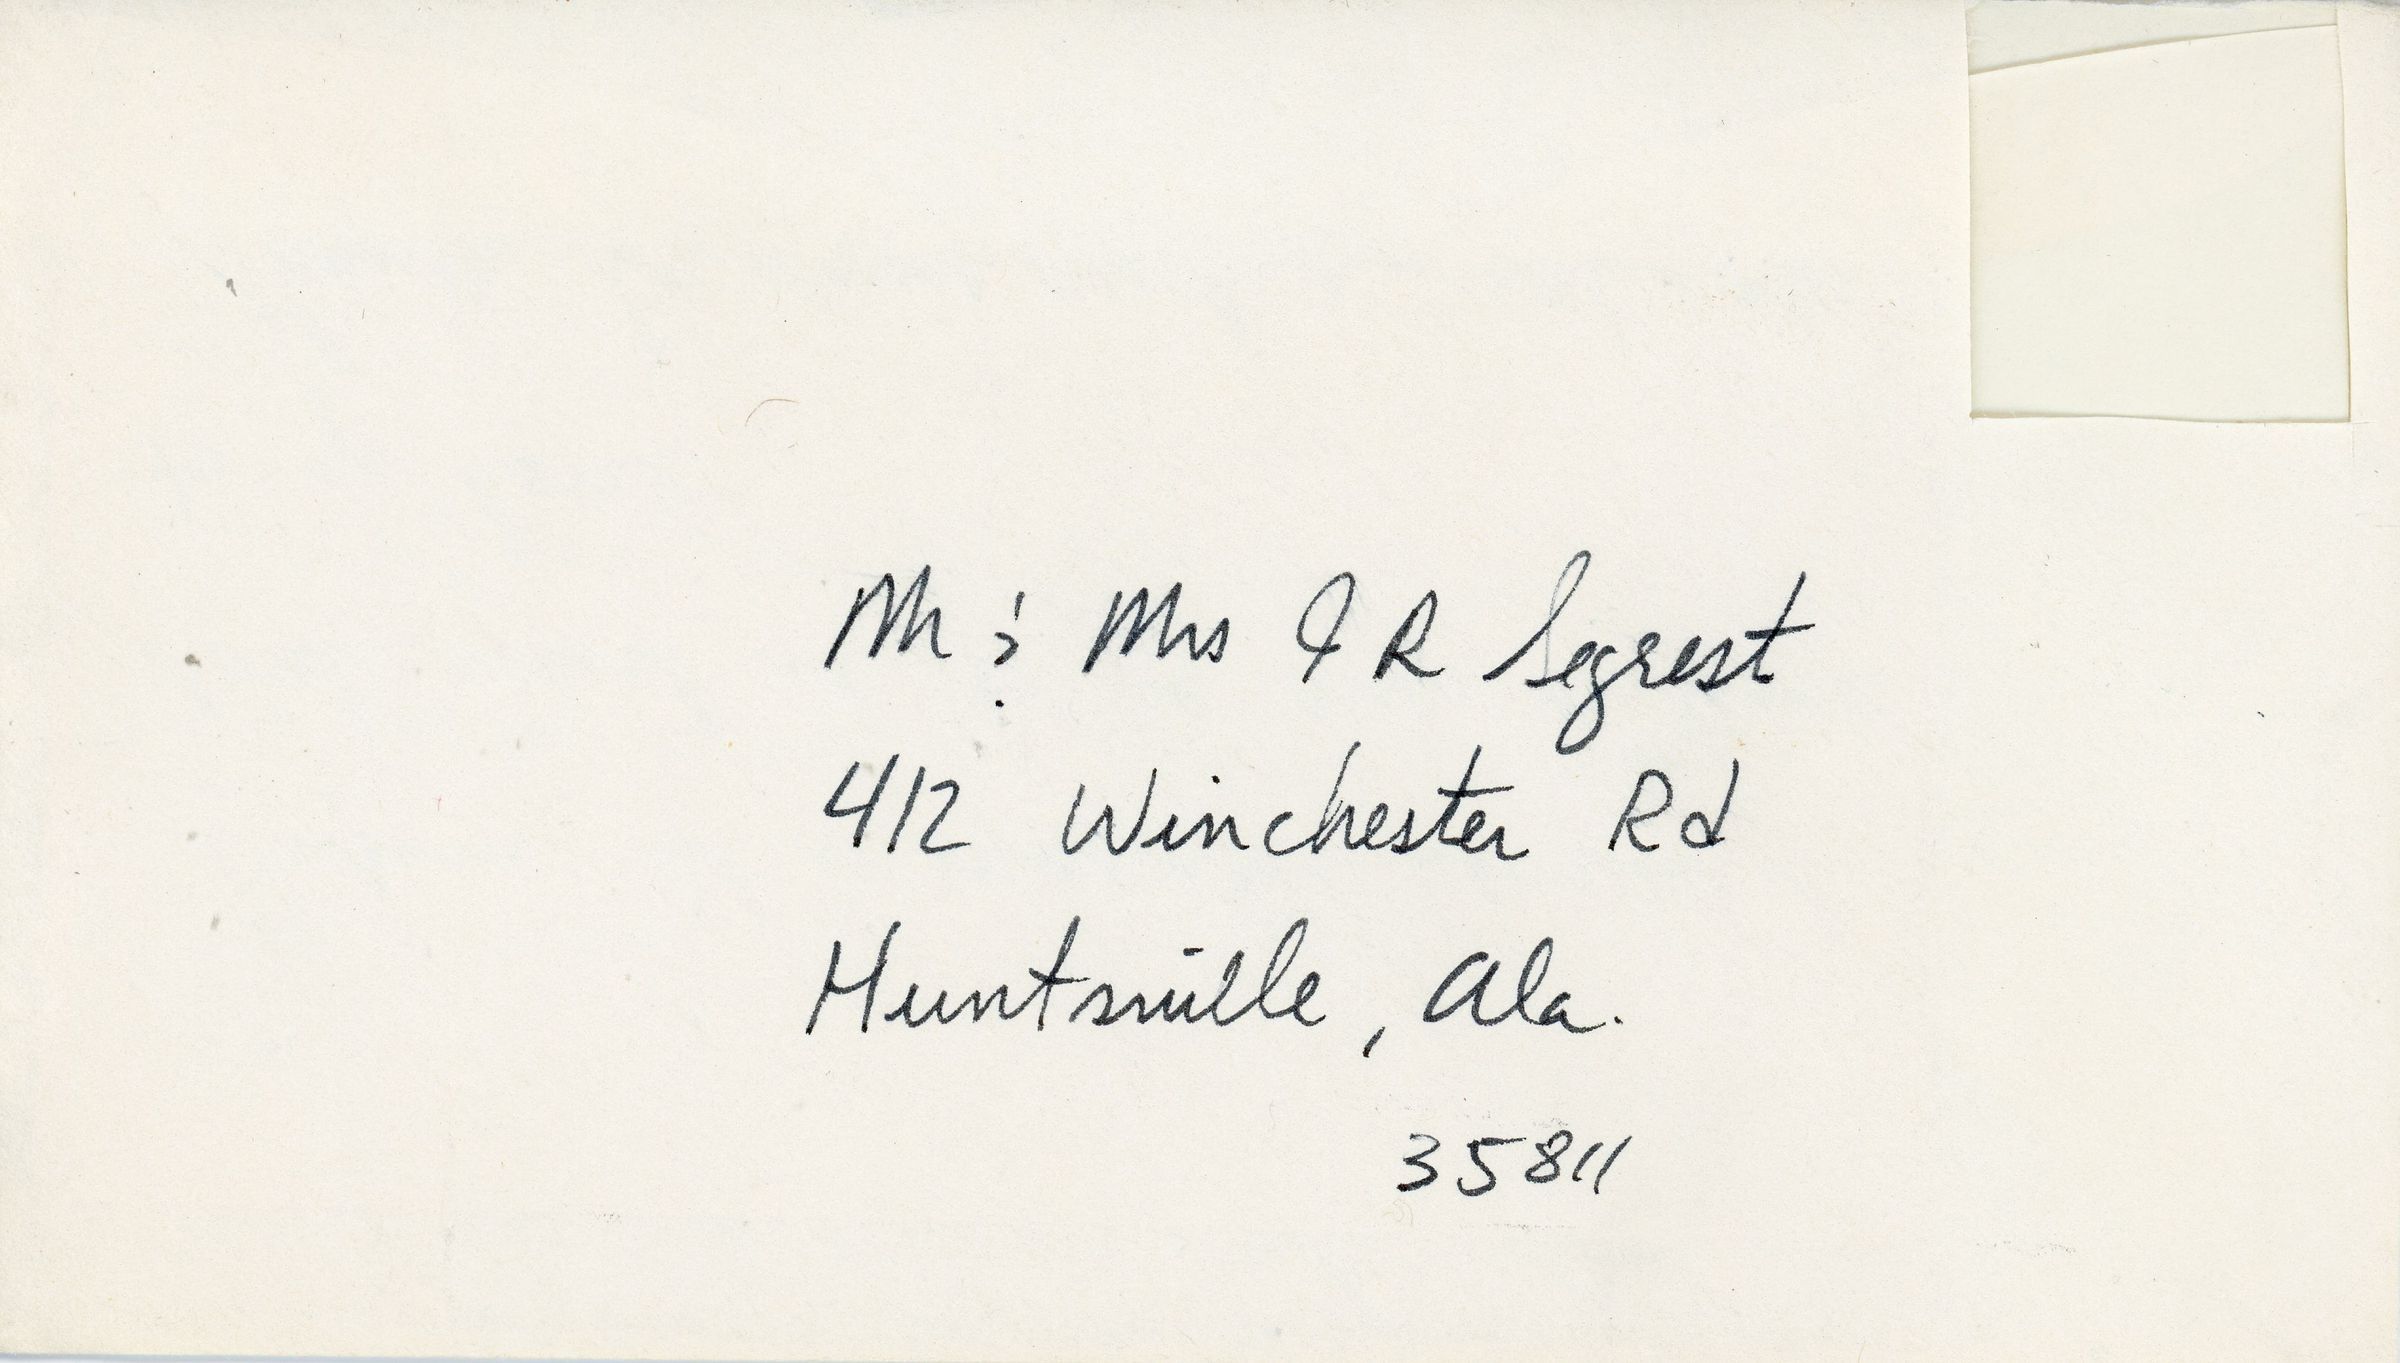 Mr & Mrs J R Segrest
412 Winchester Rd
Huntsville, Ala.
35811